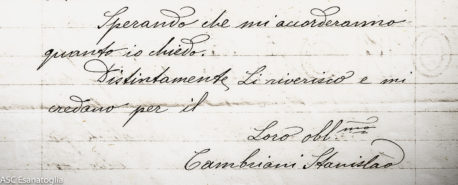 Sperando che mi accorderanno
quanto io chiedo.
Distintamente Li riverisco e mi
credano per il
Loro obbl.mo
Cambriani Stanislao
ASC Esanatoglia